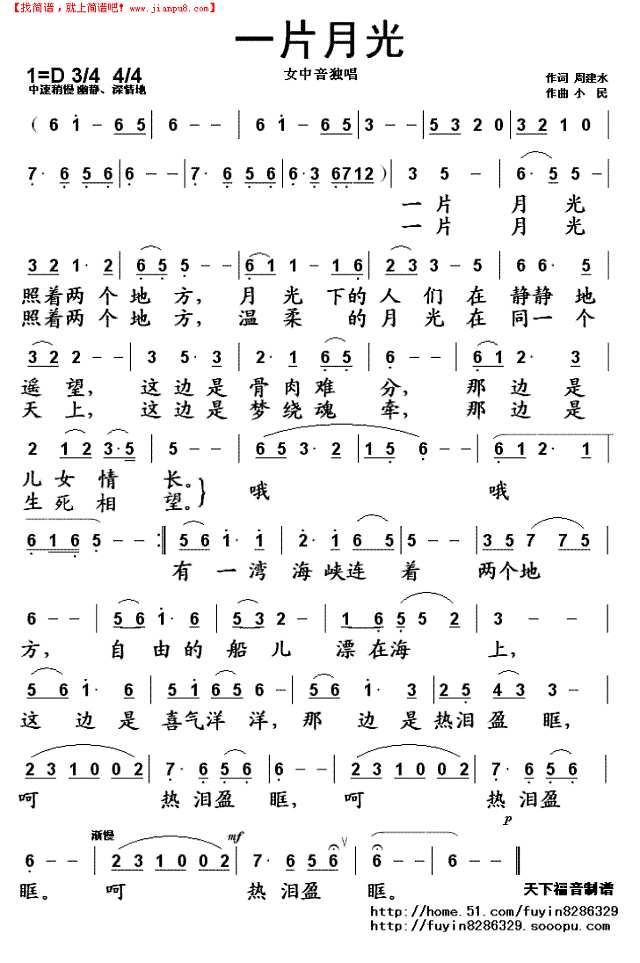 【找简谱，就上简谱吧! www.jianpu8.com】
一片月光
1=D 3/4 4/4
女中音独唱
作词 周建水
中速稍慢 幽静、深情地
作曲 小 民
( 6 1 - 6 5 | 6 - - | 6 · 1 6 1 | 3 - - | 5 3 2 0 | 3 2 1 0 |
7 · 6 5 6 | 6 - - | 7 · 6 5 6 | 6 · 3 6 7 1 2 ) | 3 5 - | 6 · 5 5 - |
一 片 月 光
一 片 月 光
3 2 1 · 2 | 6 5 5 - - | 6 1 1 - 1 6 | 2 3 3 - 5 | 6 6 · 5 |
照着两 个 地 方， 月 光 下的 人 们 在 静静 地
照着两 个 地 方， 温 柔 的 月 光 在 同 一 个
3 2 2 - - | 3 5 · 3 | 2 2 · 1 6 5 | 6 - - | 6 1 2 · 3 |
遥 望， 这 边 是 骨 肉 难 分， 那 边 是
天 上， 这 边 是 梦 绕 魂 牵， 那 边 是
2 1 2 3 · 5 | 5 - - | 6 5 3 · 2 | 1 5 6 - | 6 1 2 · 1 |
儿 女 情 长。
生 死 相 望。
哦 哦
6 1 6 5 - - :‖ 5 6 1 · 1 | 2 6 5 · 6 | 5 - - | 3 5 7 7 5 |
有 一 湾 海 峡 连 着 两个 地
6 - - | 5 6 1 · 6 | 5 3 2 · 2 | 1 6 5 5 2 | 3 - - |
方， 自 由 的 船 儿 漂 在 海 上，
5 6 1 · 6 | 5 1 6 5 6 | 5 3 2 · 3 | 7 2 5 4 3 | 3 - - |
这 边 是 喜气洋 洋， 那 边 是 热泪盈 眶，
2 3 1 0 0 2 | 7 · 6 5 6 | 6 - - | 2 3 1 0 0 2 | 7 · 6 5 6 |
呵 热 泪盈 眶， 呵 热 泪盈
p
渐慢 mf
6 - - | 2 3 1 0 0 2 | 7 · 6 5 6 | 6 - - ‖
眶。 呵 热 泪盈 眶。
天下福音制谱
http://home.51.com/fuyin8286329
http://fuyin8286329.sooopu.com